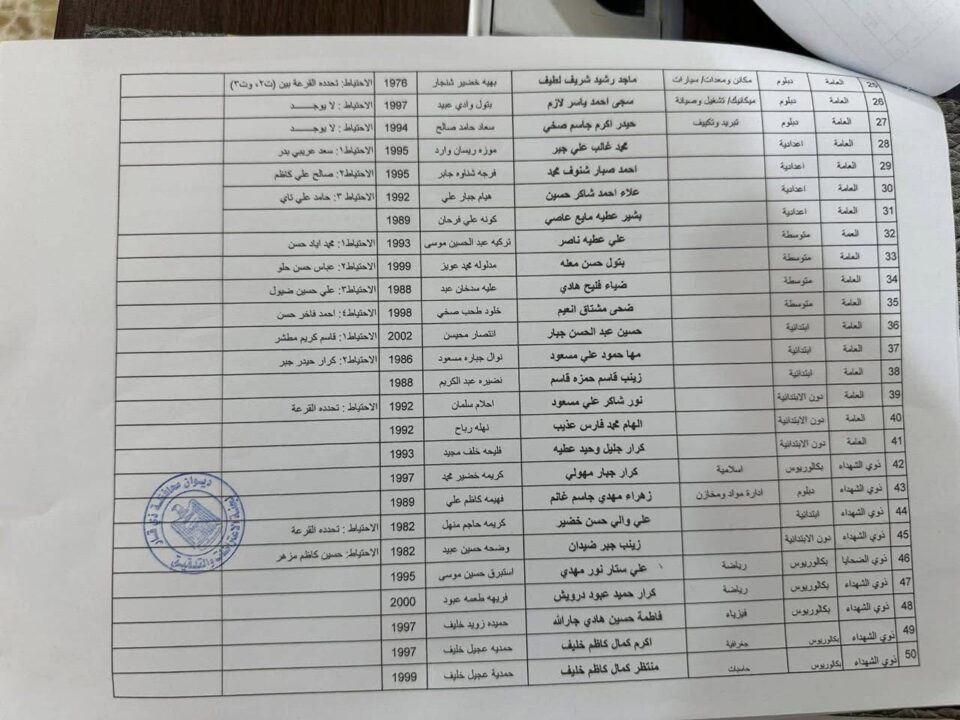 25 العامة دبلوم مكائن ومعدات/ سيارات ماجد رشيد شريف لطيف بهيه خضير شنجار 1976 الاحتياط: تحدده القرعة بين (ت٢، وت٣)
26 العامة دبلوم ميكانيك/ تشغيل وصيانة سجى احمد ياسر لازم بتول وادي عبيد 1997 الاحتياط : لا يوجد
27 العامة دبلوم تبريد وتكييف حيدر اكرم جاسم صخي سعاد حامد صالح 1994 الاحتياط : لا يوجد
28 العامة اعدادية محمد غالب علي جبر موزه ريسان وارد 1995 الاحتياط١: سعد عريبي بدر
29 العامة اعدادية احمد صبار شنوف محمد فرجه شناوه جابر 1995 الاحتياط٢: صالح علي كاظم
30 العامة اعدادية علاء احمد شاكر حسين هيام جبار علي 1992 الاحتياط ٣: حامد علي تاي
31 العامة اعدادية بشير عطيه مايع عاصي كونه علي فرحان 1989
32 العمة متوسطة علي عطيه ناصر تركيه عبد الحسين موسى 1993 الاحتياط١: محمد اياد حسن
33 العامة متوسطة بتول حسن معله مدلوله محمد عويز 1999 الاحتياط٢: عباس حسن حلو
34 العامة متوسطة ضياء فليح هادي عليه سدخان عبد 1988 الاحتياط٣: علي حسين ضيول
35 العامة متوسطة ضحى مشتاق انعيم خلود طحب صخي 1998 الاحتياط٤: احمد فاخر حسن
36 العامة ابتدائية حسين عبد الحسن جبار انتصار محيسن 2002 الاحتياط١: قاسم كريم مطشر
37 العامة ابتدائية مها حمود علي مسعود نوال جباره مسعود 1986 الاحتياط٢: كرار حيدر جبر
38 العامة ابتدائية زينب قاسم حمزه قاسم نضيره عبد الكريم 1988
39 العامة دون الابتدائية نور شاكر علي مسعود احلام سلمان 1992 الاحتياط : تحدده القرعة
40 العامة دون الابتدائية الهام محمد فارس عذيب نهله رباح 1992
41 العامة دون الابتدائية كرار جليل وحيد عطيه فليحه خلف مجيد 1993
42 ذوي الشهداء بكالوريوس اسلامية كرار جبار مهولي كريمه خضير محمد 1997
43 ذوي الشهداء دبلوم ادارة مواد ومخازن زهراء مهدي جاسم غانم فهيمه كاظم علي 1989
44 ذوي الشهداء ابتدائية علي والي حسن خضير كريمه حاجم منهل 1982 الاحتياط : تحدده القرعة
45 ذوي الشهداء دون الابتدائية زينب جبر ضيدان وضحه حسين عبيد 1982 الاحتياط: حسين كاظم مزهر
46 ذوي الضحايا بكالوريوس رياضة علي ستار نور مهدي استبرق حسين موسى 1995
47 ذوي الشهداء بكالوريوس رياضة كرار حميد عبود درويش فريهه طعمه عبود 2000
48 ذوي الشهداء بكالوريوس فيزياء فاطمة حسين هادي جارالله حميده زويد خليف 1997
49 ذوي الشهداء بكالوريوس جغرافية اكرم كمال كاظم خليف حمديه عجيل خليف 1997
50 ذوي الشهداء بكالوريوس حاسبات منتظر كمال كاظم خليف حمدية عجيل خليف 1999
ديوان محافظة ذي قار
والتدقيق